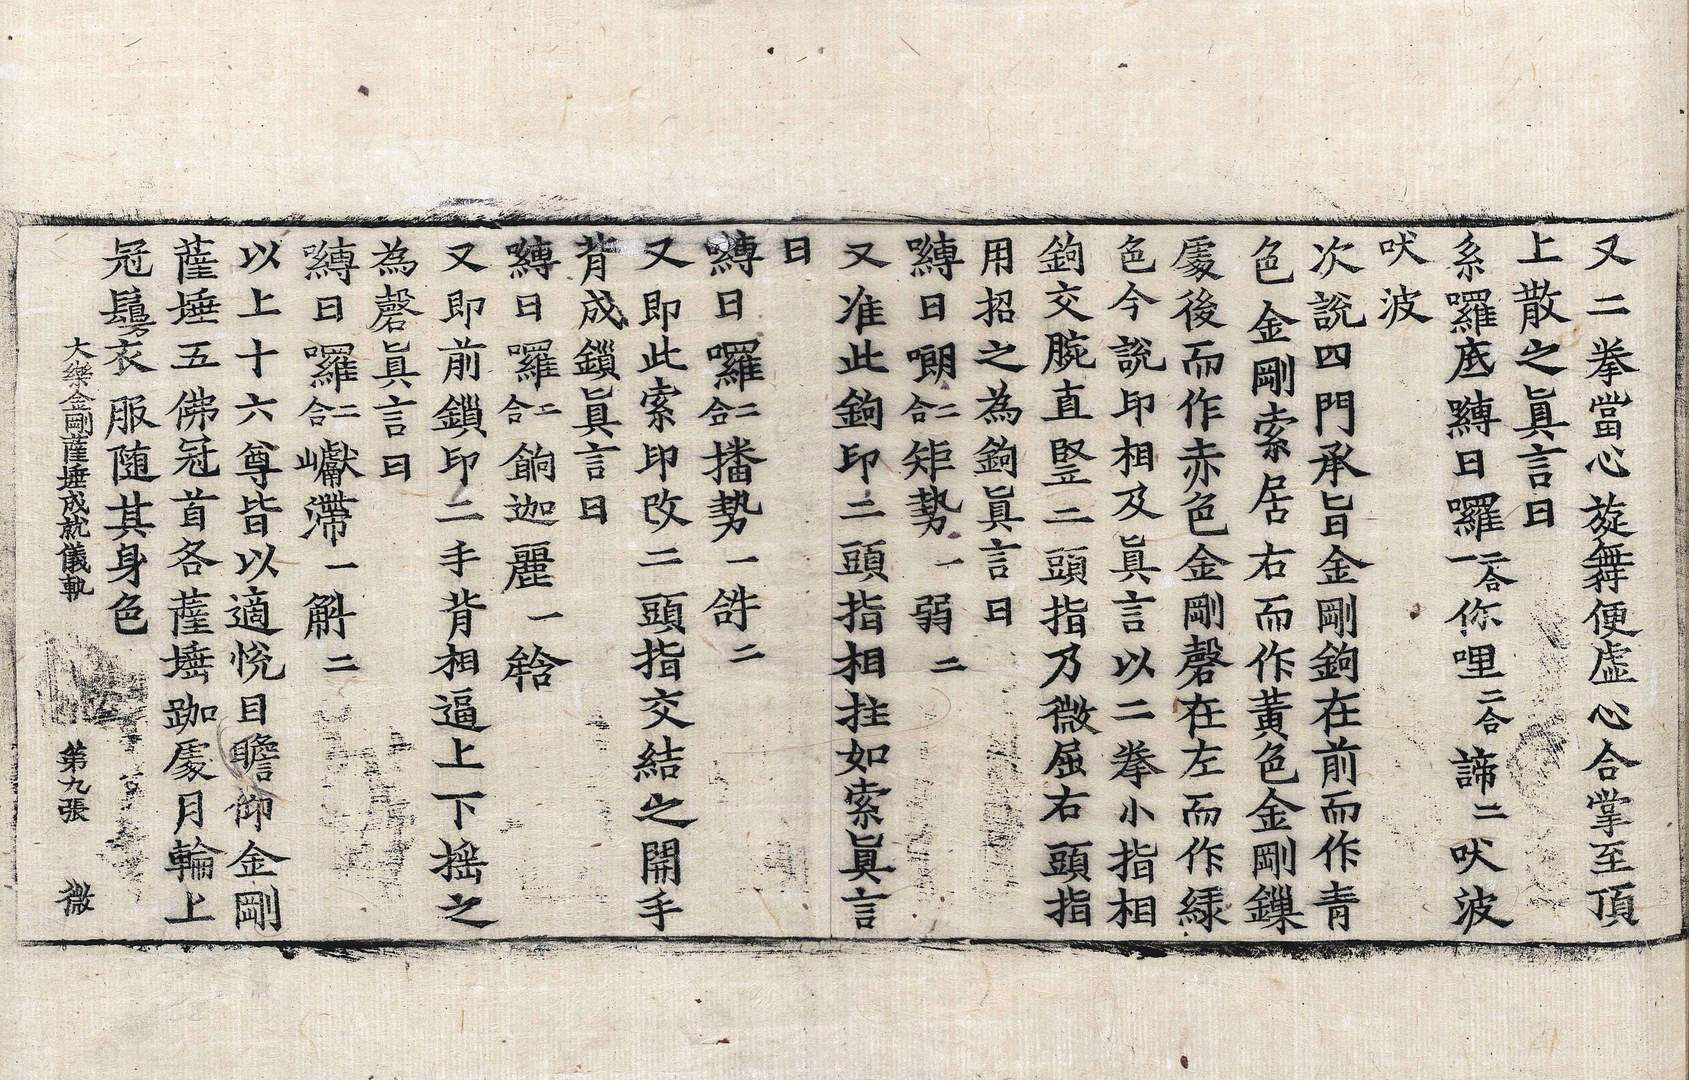 又二拳當心旋舞便虛心合掌至頂
上散之眞言曰
系囉底嚩日囉二合一你哩二合諦二吠波
吠波
次說四門承旨金剛鉤在前而作青
色金剛索居右而作黃色金剛鏁
處後而作赤色金剛磬在左而作綠
色今說印相及眞言以二拳小指相
鉤交腕直竪二頭指乃微屈右頭指
用招之為鉤眞言曰
嚩日囉二合矩勢一弱二
又准此鉤印二頭指相拄如索眞言
曰
嚩日囉二合播勢一䤈二
又即此索印改二頭指交結之開手
背成鎖眞言曰
嚩日囉二合餉迦麗一
又即前鎖印二手背相逼上下搖之
為磬眞言曰
嚩日囉二合巘滯一斛二
以上十六尊皆以適悅目瞻仰金剛
薩埵五佛冠首各薩埵跏處月輪上
冠鬘衣服隨其身色
大樂金剛薩埵成就儀軌 第九張 微